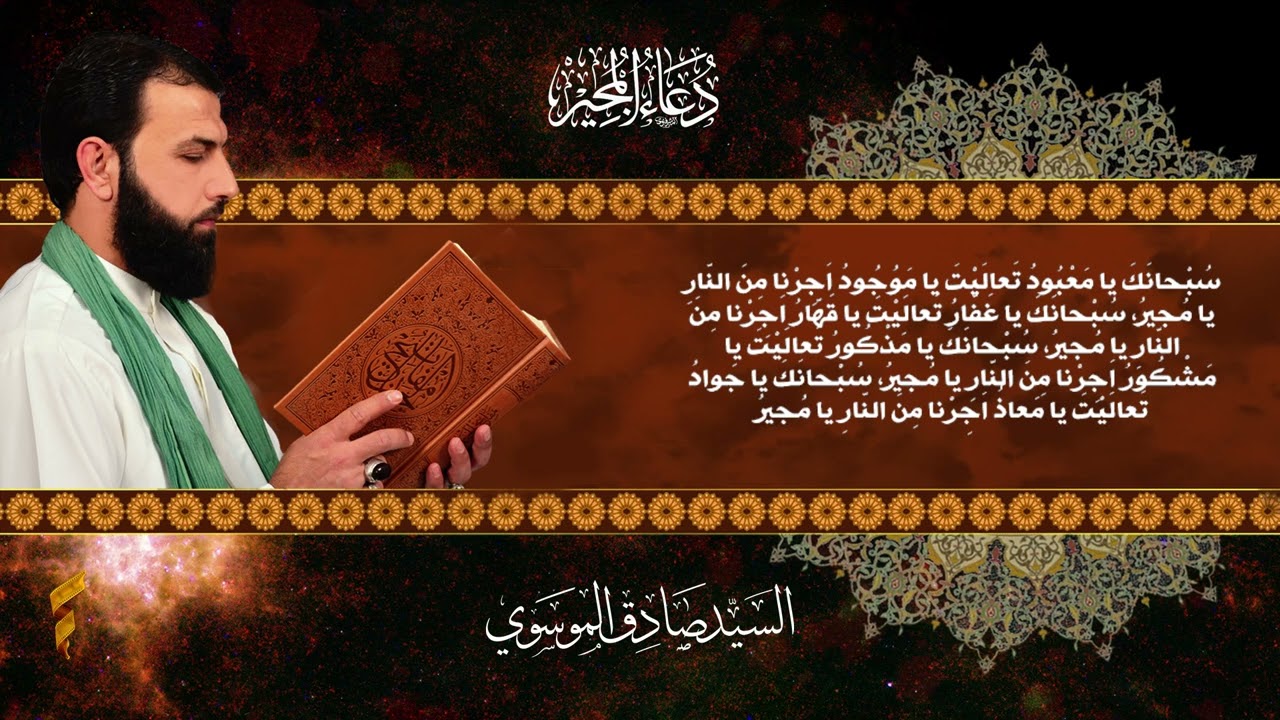 دُعَاءُ الْمُجِيْر
سُبْحانَكَ يا مَعْبُودُ تَعالَيْتَ يا مَوْجُودُ اَجِرْنا مِنَ النّار
يا مُجيرُ، سبْحانَكَ يا غَفّارُ تَعالَيْتَ يا قَهّارُ اَجِرْنا مِنَ
النّار يا مُجيرُ، سُبْحانَكَ يا مَذْكُورُ تَعالَيْتَ يا
مَشْكُورُ اَجِرْنا مِنَ النّارِ يا مُجيرُ، سُبْحانَكَ يا جَوادُ
تَعالَيْتَ يا مَعاذُ اَجِرْنا مِنَ النّارِ يا مُجيرُ
السَيِّد صَادِق الموسَوي